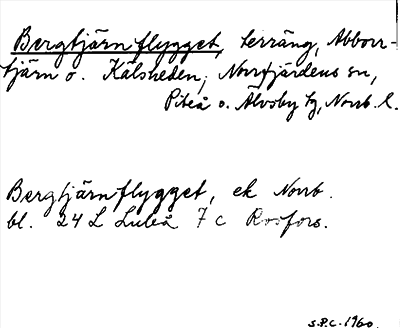 Bergtjärnflygget, terräng, Abborr-
tjärn o. Kälsheden, Norrfjärdens sn,
Piteå o. Älvsby tg, Norrb. l.
Bergtjärnflygget, ek Norrb.
bl. 24 L Luleå 7 c Rosfors.
S.P.C. 1960.